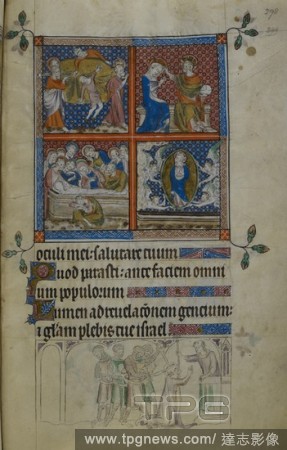 oculi mei: salutare tuum
Quod parasti: ante faciem omni
um populorum
Lumen ad revelacōnem gencium:
⁊ glam plebis tue israel
TPG
www.tpgnews.com/ 達志影像